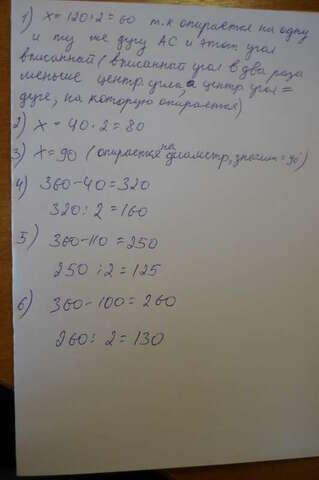 1) x = 120:2 = 60 т.к опирается на одну
и ту же дугу AC и этот угол
вписанный (вписанный угол в два раза
меньше центр угла, а центр угол =
дуге, на которую опирается)
2) x = 40·2 = 80
3) x = 90 (опирается на диаметр, значит = 90°)
4) 360-40=320
320:2=160
5) 360-110=250
250:2=125
6) 360-100=260
260:2=130